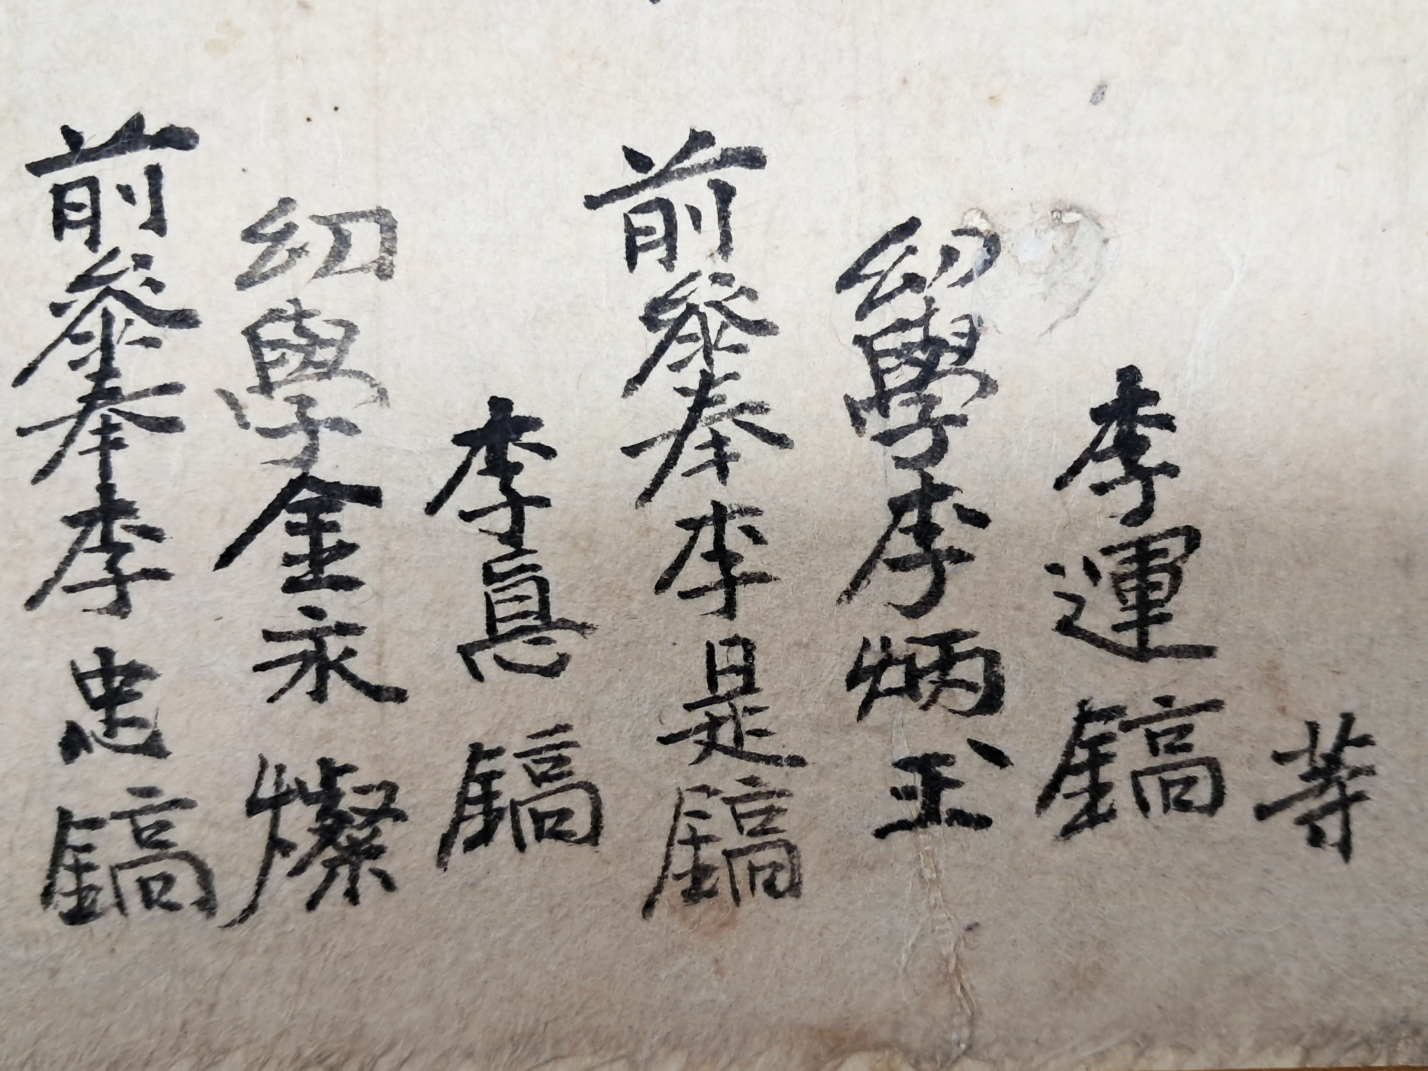 等
李運鎬
幼學李炳玉
前參奉李是鎬
李悳鎬
幼學金永燦
前參奉李忠鎬